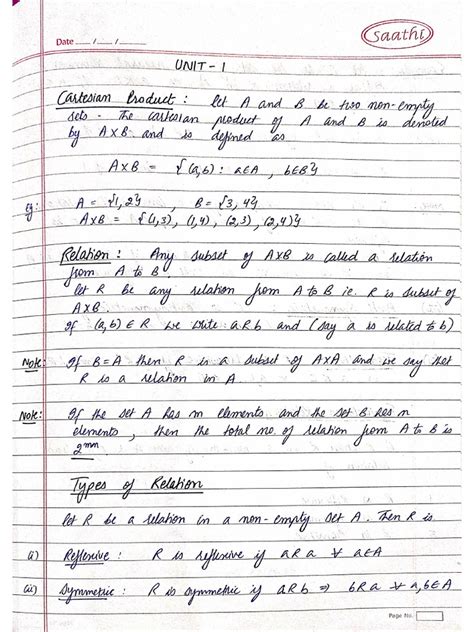 saathi
Date ..... / ..... / .....
UNIT - 1
Cartesian Product : Let A and B be two non-empty
sets - The cartesian product of A and B is denoted
by A×B and is defined as
A×B = {(a,b) : a∈A , b∈B}
eg: A = {1,2} , B = {3,4}
A×B = {(1,3), (1,4), (2,3), (2,4)}
Relation : Any subset of A×B is called a relation
from A to B
let R be any relation from A to B ie. R is subset of
A×B.
If (a,b) ∈ R we write aRb and (say a is related to b)
Note: If B=A then R is a subset of A×A and we say that
R is a relation in A
Note: If the set A has m elements and the set B has n
elements, then the total no. of relation from A to B is
2^mn
Types of Relation
let R be a relation in a non-empty set A. Then R is
(i) Reflexive : R is reflexive if aRa ∀ a∈A
(ii) Symmetric : R is symmetric if aRb ⇒ bRa ∀ a,b∈A
Page No.